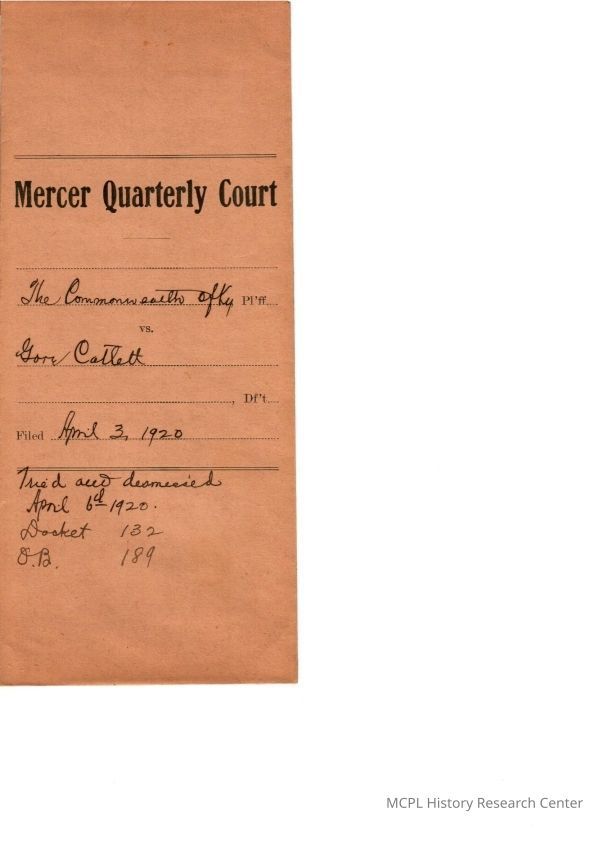 Mercer Quarterly Court
The Commonwealth of Ky Pl'ff.
vs.
Catlett
, Df't.
Filed April 3, 1920
Tried and desmessed
April 6d 1920.
Docket 132
O.B. 189
MCPL History Research Center